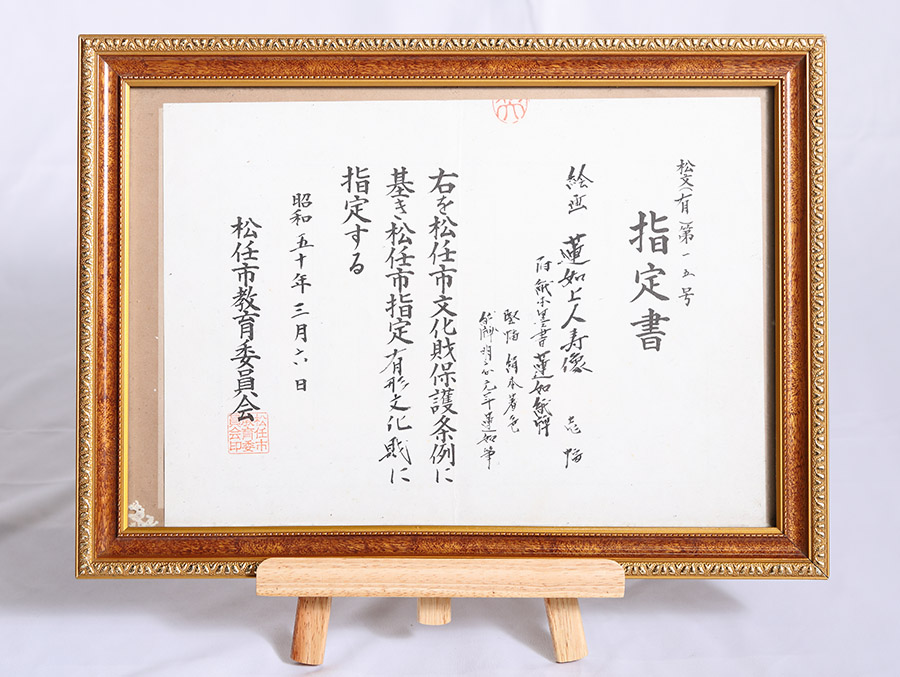 松文(有)第一五号
指定書
絵画 蓮如上人寿像 壱幅
附紙本墨書蓮如裁牌
竪幅 絹本着色
裁牌 文明元年蓮如筆
右を松任市文化財保護条例に
基き松任市指定有形文化財に
指定する
昭和五十年三月六日
松任市教育委員会
松任市
教育委
員会印